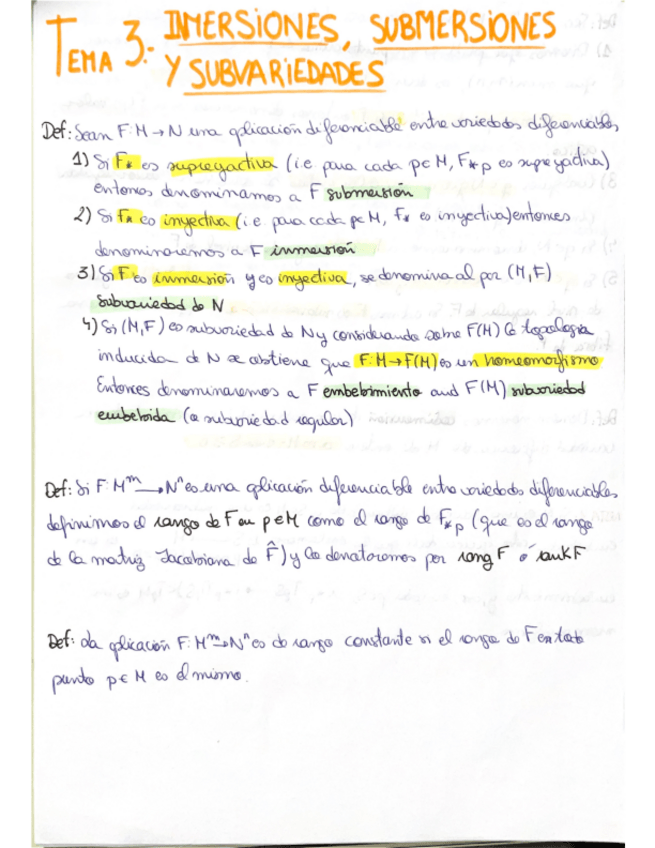 TEMA 3.- INMERSIONES, SUBMERSIONES
Y SUBVARIEDADES
Def: Sean F: M → N una aplicación diferenciable entre variedades diferenciables,
1) Si F* es suprayectiva (i.e para cada p∈M, F*p es suprayectiva)
entonces denominamos a F submersión
2) Si F* es inyectiva (i.e para cada p∈M, F* es inyectiva) entonces
denominaremos a F inmersión
3) Si F es inmersión y es inyectiva, se denomina al par (M,F)
subvariedad de N
4) Si (M,F) es subvariedad de N y considerando sobre F(M) la topología
inducida de N se obtiene que F: M→F(M) es un homeomorfismo
Entonces denominaremos a F embebimiento and F(M) subvariedad
embebida (o subvariedad regular)
Def: Si F: Mᵐ → Nⁿ es una aplicación diferenciable entre variedades diferenciables
definimos el rango de F en p∈M como el rango de F*p (que es el rango
de la matriz Jacobiana de F̂) y lo denotaremos por rang F o rank F
Def: La aplicación F: Mᵐ→Nⁿ es de rango constante si el rango de F en todo
punto p∈M es el mismo.